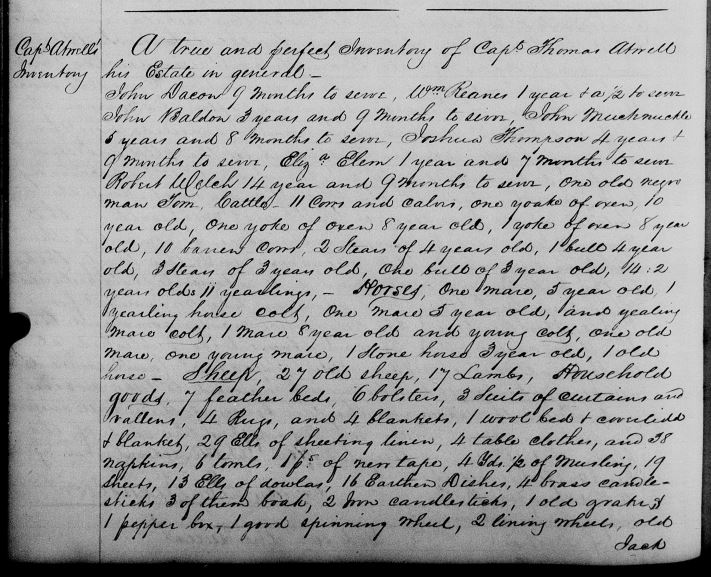 Capt. Atwell's
Inventory
A true and perfect Inventory of Capt. Thomas Atwell
his Estate in general –
John Dacon 9 months to serve, Wm Reanes 1 year & a 1/2 to serve
John Baldon 3 years and 9 months to serve, John Muchnuckle
5 years and 8 months to serve, Joshua Thompson 4 years &
9 months to serve, Eliza Elem 1 year and 7 months to serve
Robert Welch 14 year and 9 months to serve, One old negro
man Tom, Cattle – 11 Cows and calves, one yoake of oxen, 10
year old, one yoke of oxen 8 year old, 1 yoke of oxen 8 year
old, 10 barren cows, 2 Stears of 4 years old, 1 bull 4 year
old, 3 Stears of 3 years old, One bull of 3 year old, 14:2
years olds 11 yearlings, – Horses, One mare, 5 year old, 1
yearling horse colt, One mare 5 year old, and yealing
mare colt, 1 Mare 8 year old and young colt, one old
mare, one young mare, 1 Stone horse 3 year old, 1 old
horse – Sheep, 27 old sheep, 17 Lambs, Household
goods, 7 feather beds, 6 bolsters, 3 Suits of curtains and
vallens, 4 Rugs, and 4 blankets, 1 wool bed & coverlidd
& blanket, 29 Ells of sheeting linen, 4 table clothes, and 38
napkins, 6 towls, 1 ps of new tape, 4 Yds 1/2 of Musling, 19
Sheets, 13 Ells of dowlas, 16 Earthen Dishes, 4 brass candle-
sticks 3 of them boak, 2 Iron candlesticks, 1 old grater,
1 pepper box, 1 good spinning wheel, 2 lining wheels, old
Jack